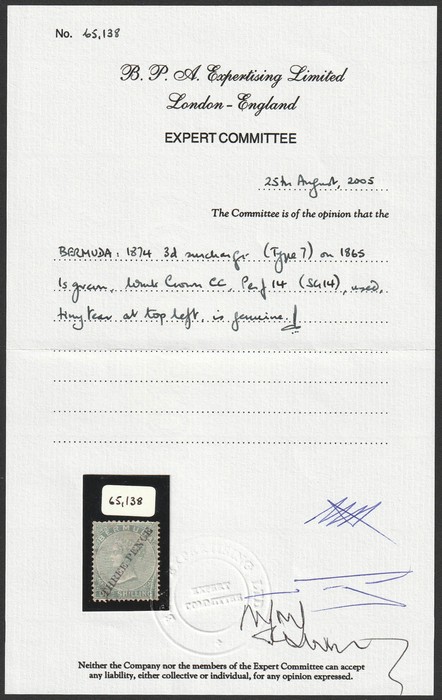 No. 65,138
B. P. A. Expertising Limited
London - England
EXPERT COMMITTEE
25th August, 2005
The Committee is of the opinion that the
BERMUDA: 1874 3d surcharge (Type 7) on 1865
1s green, wmk Crown CC, Perf 14 (SG14), used,
tiny tear at top left, is genuine.
65,138
BERMUDA
THREE PENCE
ONE SHILLING
EXPERTISING LTD
EXPERT
COMMITTEE
Neither the Company nor the members of the Expert Committee can accept
any liability, either collective or individual, for any opinion expressed.